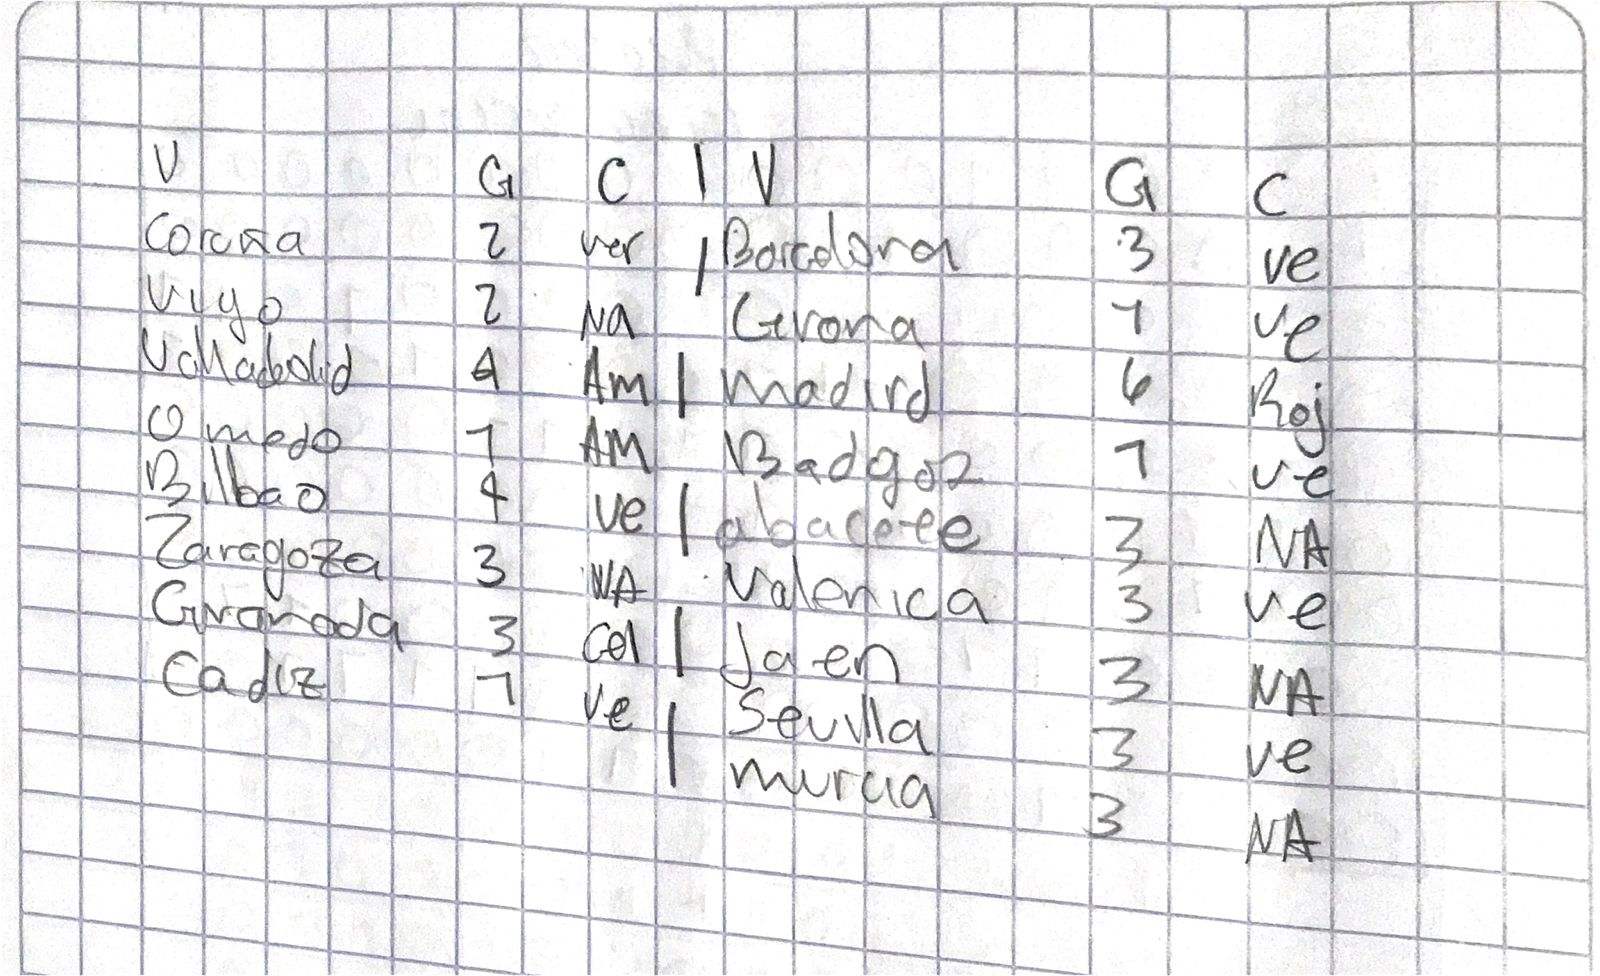 V G C | V G C
Coruña 2 ver | Barcelona 3 ve
Vigo 2 NA Girona 1 ve
Valladolid 4 Am | madird 6 Roj
Omedo 1 AM Badgoz 1 ve
Bilbao 4 ve | abacete 3 NA
Zaragoza 3 NA Valenica 3 ve
Granada 3 | Jaen 3 NA
Cadiz 1 ve | Sevilla 3 ve
murcia 3 NA